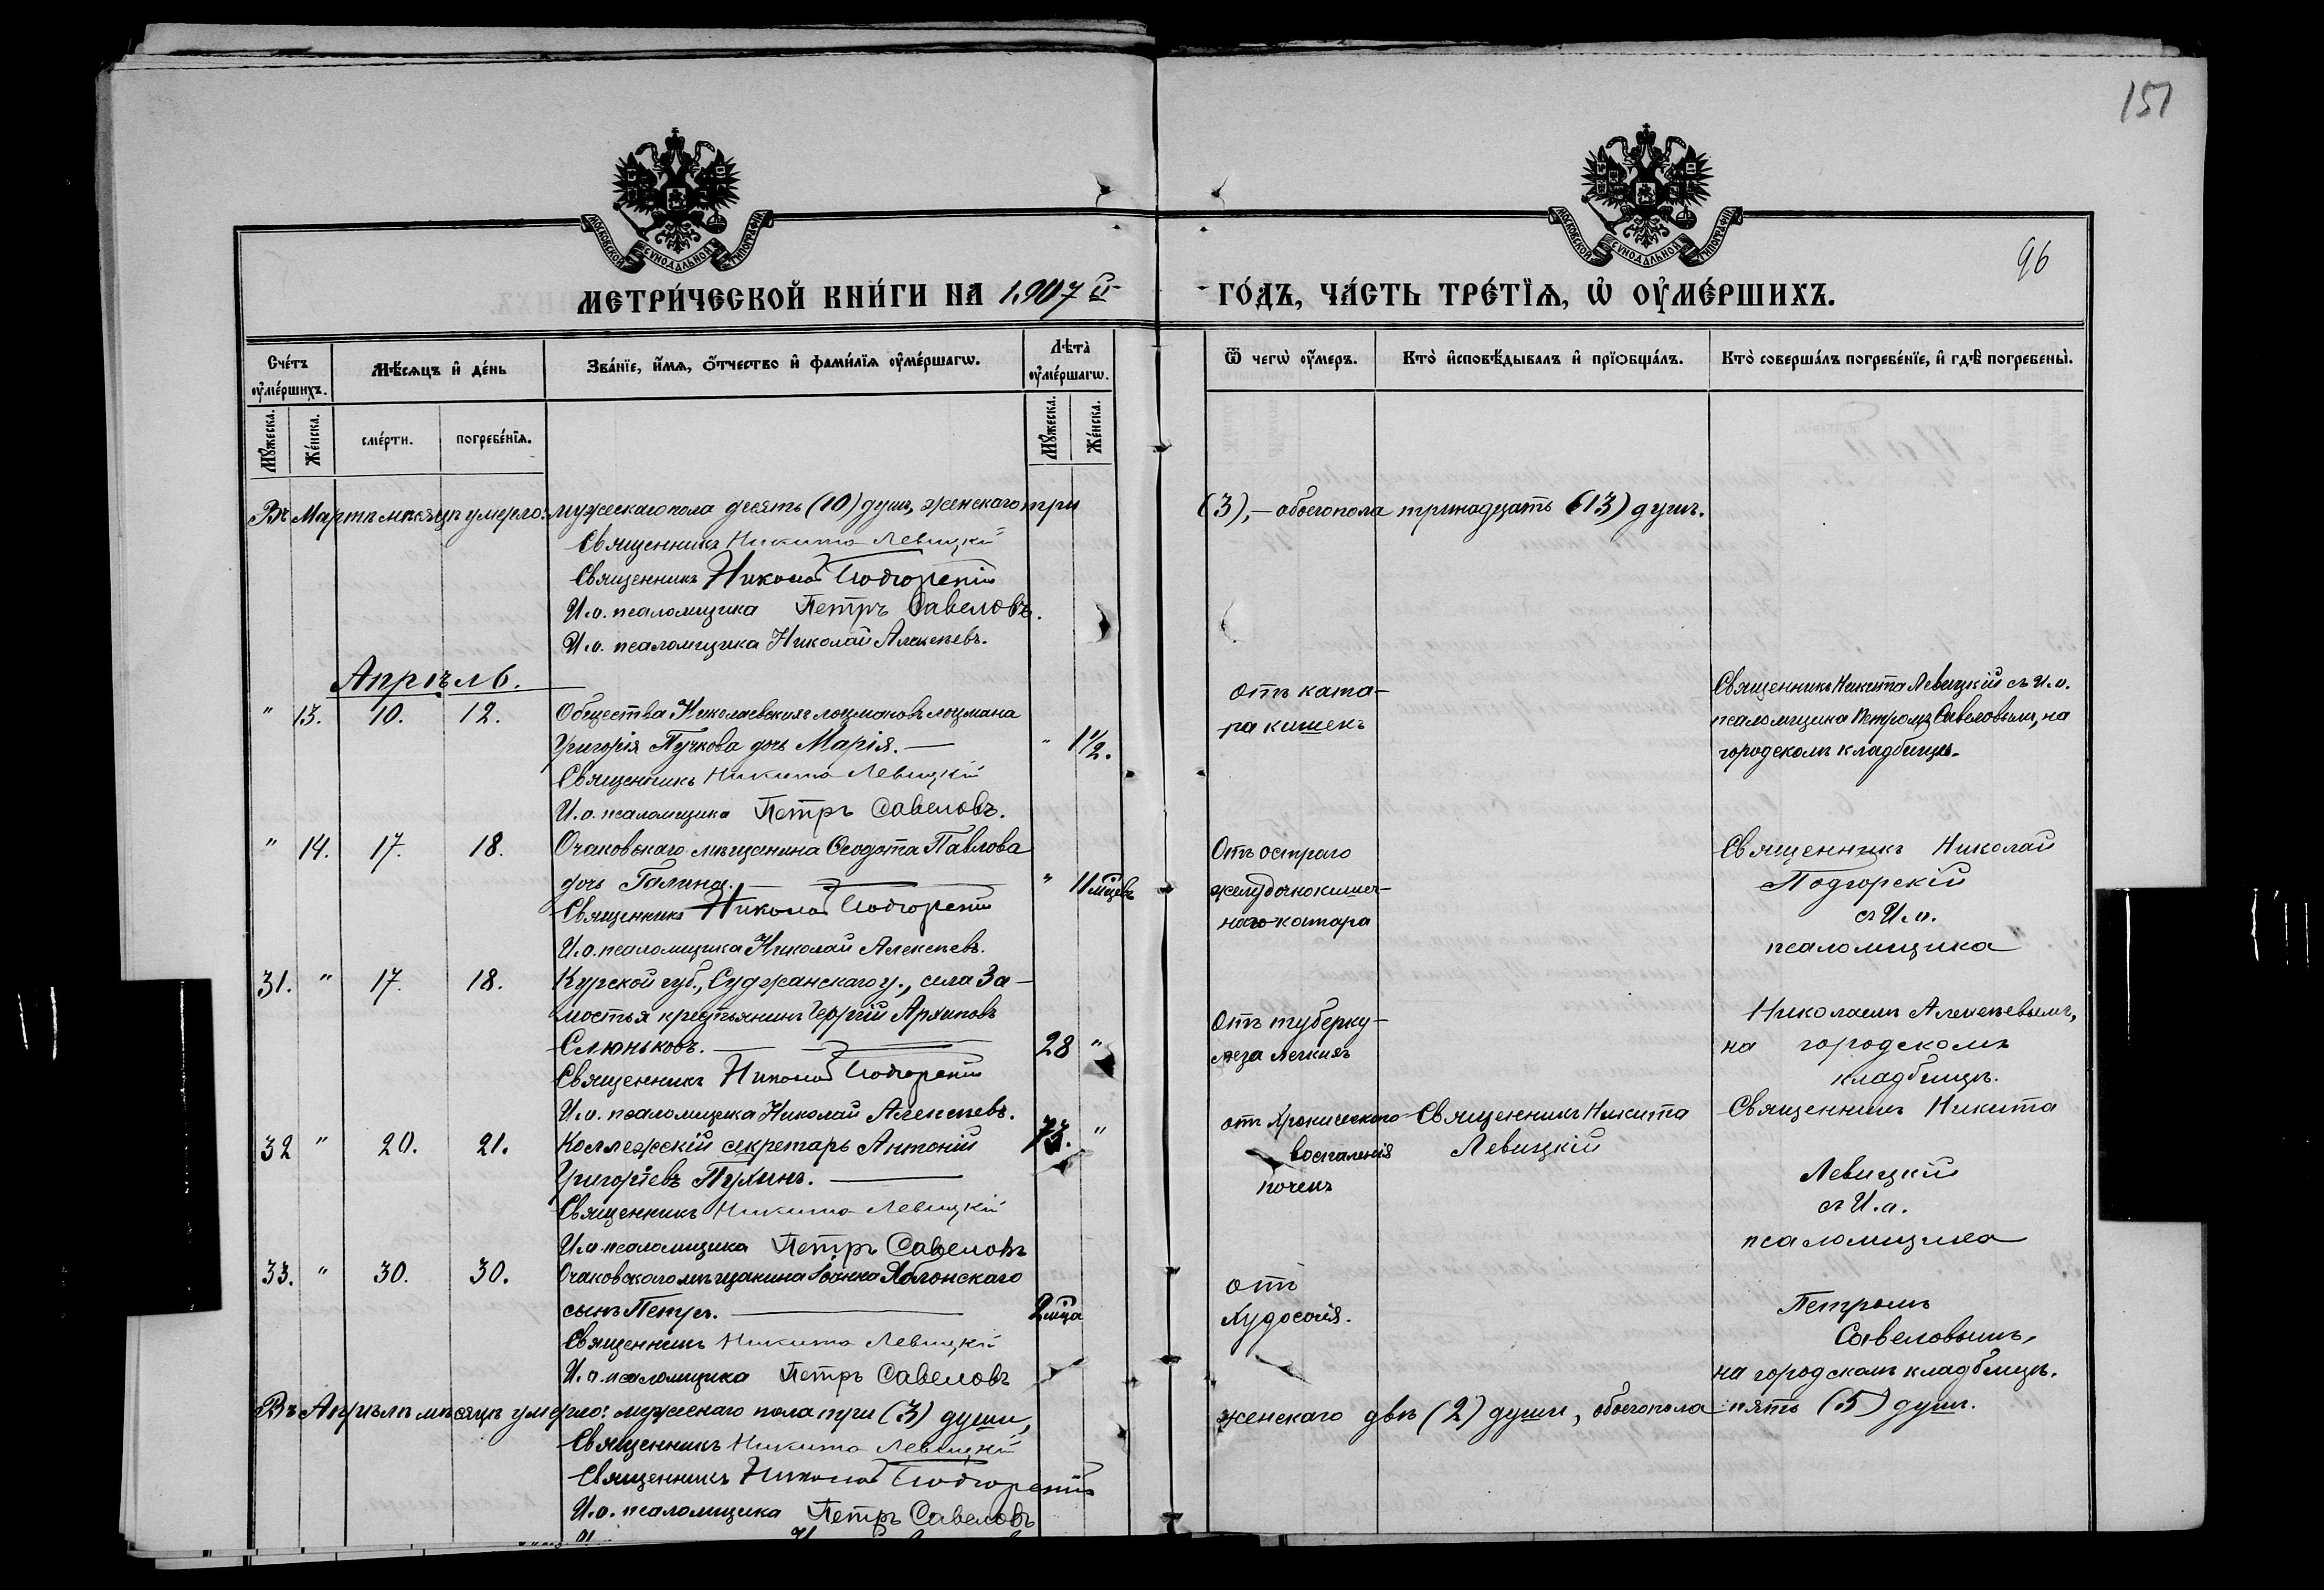 151
96
МОСКОВСКОЙ СѴНОДАЛЬНОЙ ТИПОГРАФІИ
МОСКОВСКОЙ СѴНОДАЛЬНОЙ ТИПОГРАФІИ
МЕТРИ́ЧЕСКОЙ КНИ́ГИ НА 1907 й
ГО́ДЪ, ЧА́СТЬ ТРЕ́ТЇѦ, Ѡ҆ ОУ҆МЕ́РШИХЪ.
Сче́тъ оу҆ме́ршихъ.
Мѣ́сѧцъ и҆ де́нь
Зва́нїе, и҆́мѧ, ѻ҆́тчество и҆ фами́лїѧ оу҆ме́ршагѡ.
Лѣта̀ оу҆ме́ршагѡ.
Ѿ чегѡ̀ оу҆́меръ.
Кто̀ и҆сповѣ́дывалъ и҆ прїѻбща́лъ.
Кто̀ соверша́лъ погребе́нїе, и҆ гдѣ̀ погребены̀.
Мꙋ́жеска.
Же́нска.
сме́рти.
погребе́нїѧ.
Мꙋ́жеска.
Же́нска.
Въ Мартѣ мѣсяцѣ умерло: мужескаго пола десять (10) душъ, женскаго три
(3), — обоего пола тринадцать (13) душъ.
Священникъ Никита Левицкій
Священникъ Николай Подгорскій
И.о. псаломщика Петръ Савеловъ.
И.о. псаломщика Николай Алексѣевъ.
Апрѣль.
" 13. 10. 12. Общества Николаевскихъ лоцмановъ лоцмана
Григорія Пучкова дочь Марія. — " 1 1/2.
Священникъ Никита Левицкій
И.о. псаломщика Петръ Савеловъ.
отъ ката-
ра кишекъ
Священникъ Никита Левицкій съ И.о.
псаломщика Петромъ Савеловымъ, на
городскомъ кладбищѣ.
" 14. 17. 18. Очаковскаго мѣщанина Ѳеодота Павлова
дочь Галина. — " 11 мѣцевъ
Священникъ Николай Подгорскій
И.о. псаломщика Николай Алексѣевъ.
Отъ остраго
желудочно кишеч-
наго катара
Священникъ Николай
Подгорскій
съ И.о.
псаломщика
31. " 17. 18. Курской губ., Суджанскаго у., села За-
мостья крестьянинъ Георгій Архиповъ
Слюньковъ. — 28 "
Священникъ Николай Подгорскій
И.о. псаломщика Николай Алексѣевъ.
Отъ туберку-
леза легкихъ
Николаемъ Алексѣевымъ,
на городскомъ
кладбищѣ.
32 " 20. 21. Коллежскій секретарь Антоній 73. "
Григорьевъ Пухинъ. —
Священникъ Никита Левицкій
И.о. псаломщика Петръ Савеловъ
отъ хроническаго
воспаленія
почекъ
Священникъ Никита
Левицкій
Священникъ Никита
Левицкій
съ И.о.
псаломщика
33. " 30. 30. Очаковскаго мѣщанина Іоанна Яблонскаго
сынъ Петръ. — 2 мѣца
Священникъ Никита Левицкій
И.о. псаломщика Петръ Савеловъ
отъ
худосочія.
Петромъ
Савеловымъ,
на городскомъ кладбищѣ.
Въ Апрѣлѣ мѣсяцѣ умерло: мужескаго пола три (3) души,
женскаго двѣ (2) души, обоего пола пять (5) душъ.
Священникъ Никита Левицкій
Священникъ Николай Подгорскій
И.о. псаломщика Петръ Савеловъ